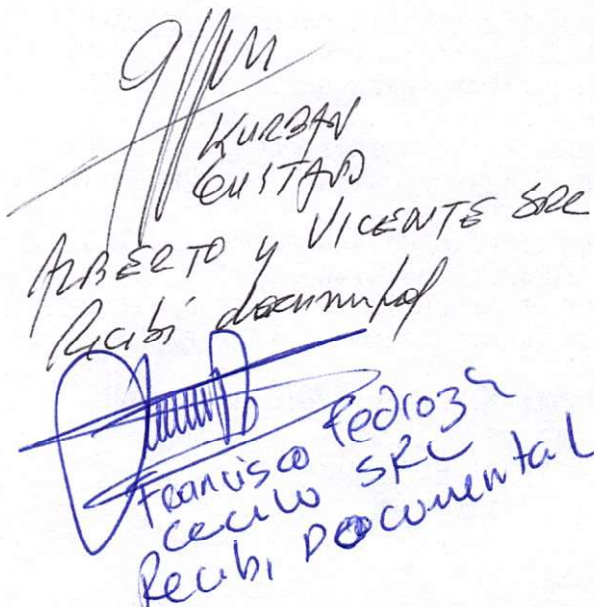 KURBAN
GUSTAVO
ALBERTO y VICENTE SRL
Recibí documental
Francisco Pedroza
Cecilo SRL
Recibi Documental